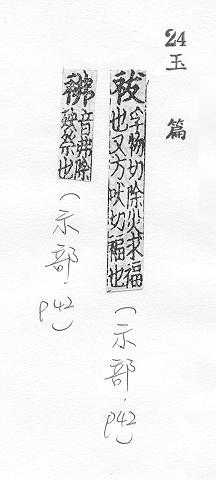 24
玉篇
祓
孚物切除災求福
也又方吠切福也
(示部.p42)
音弗除
殃祭也
(示部.p42)